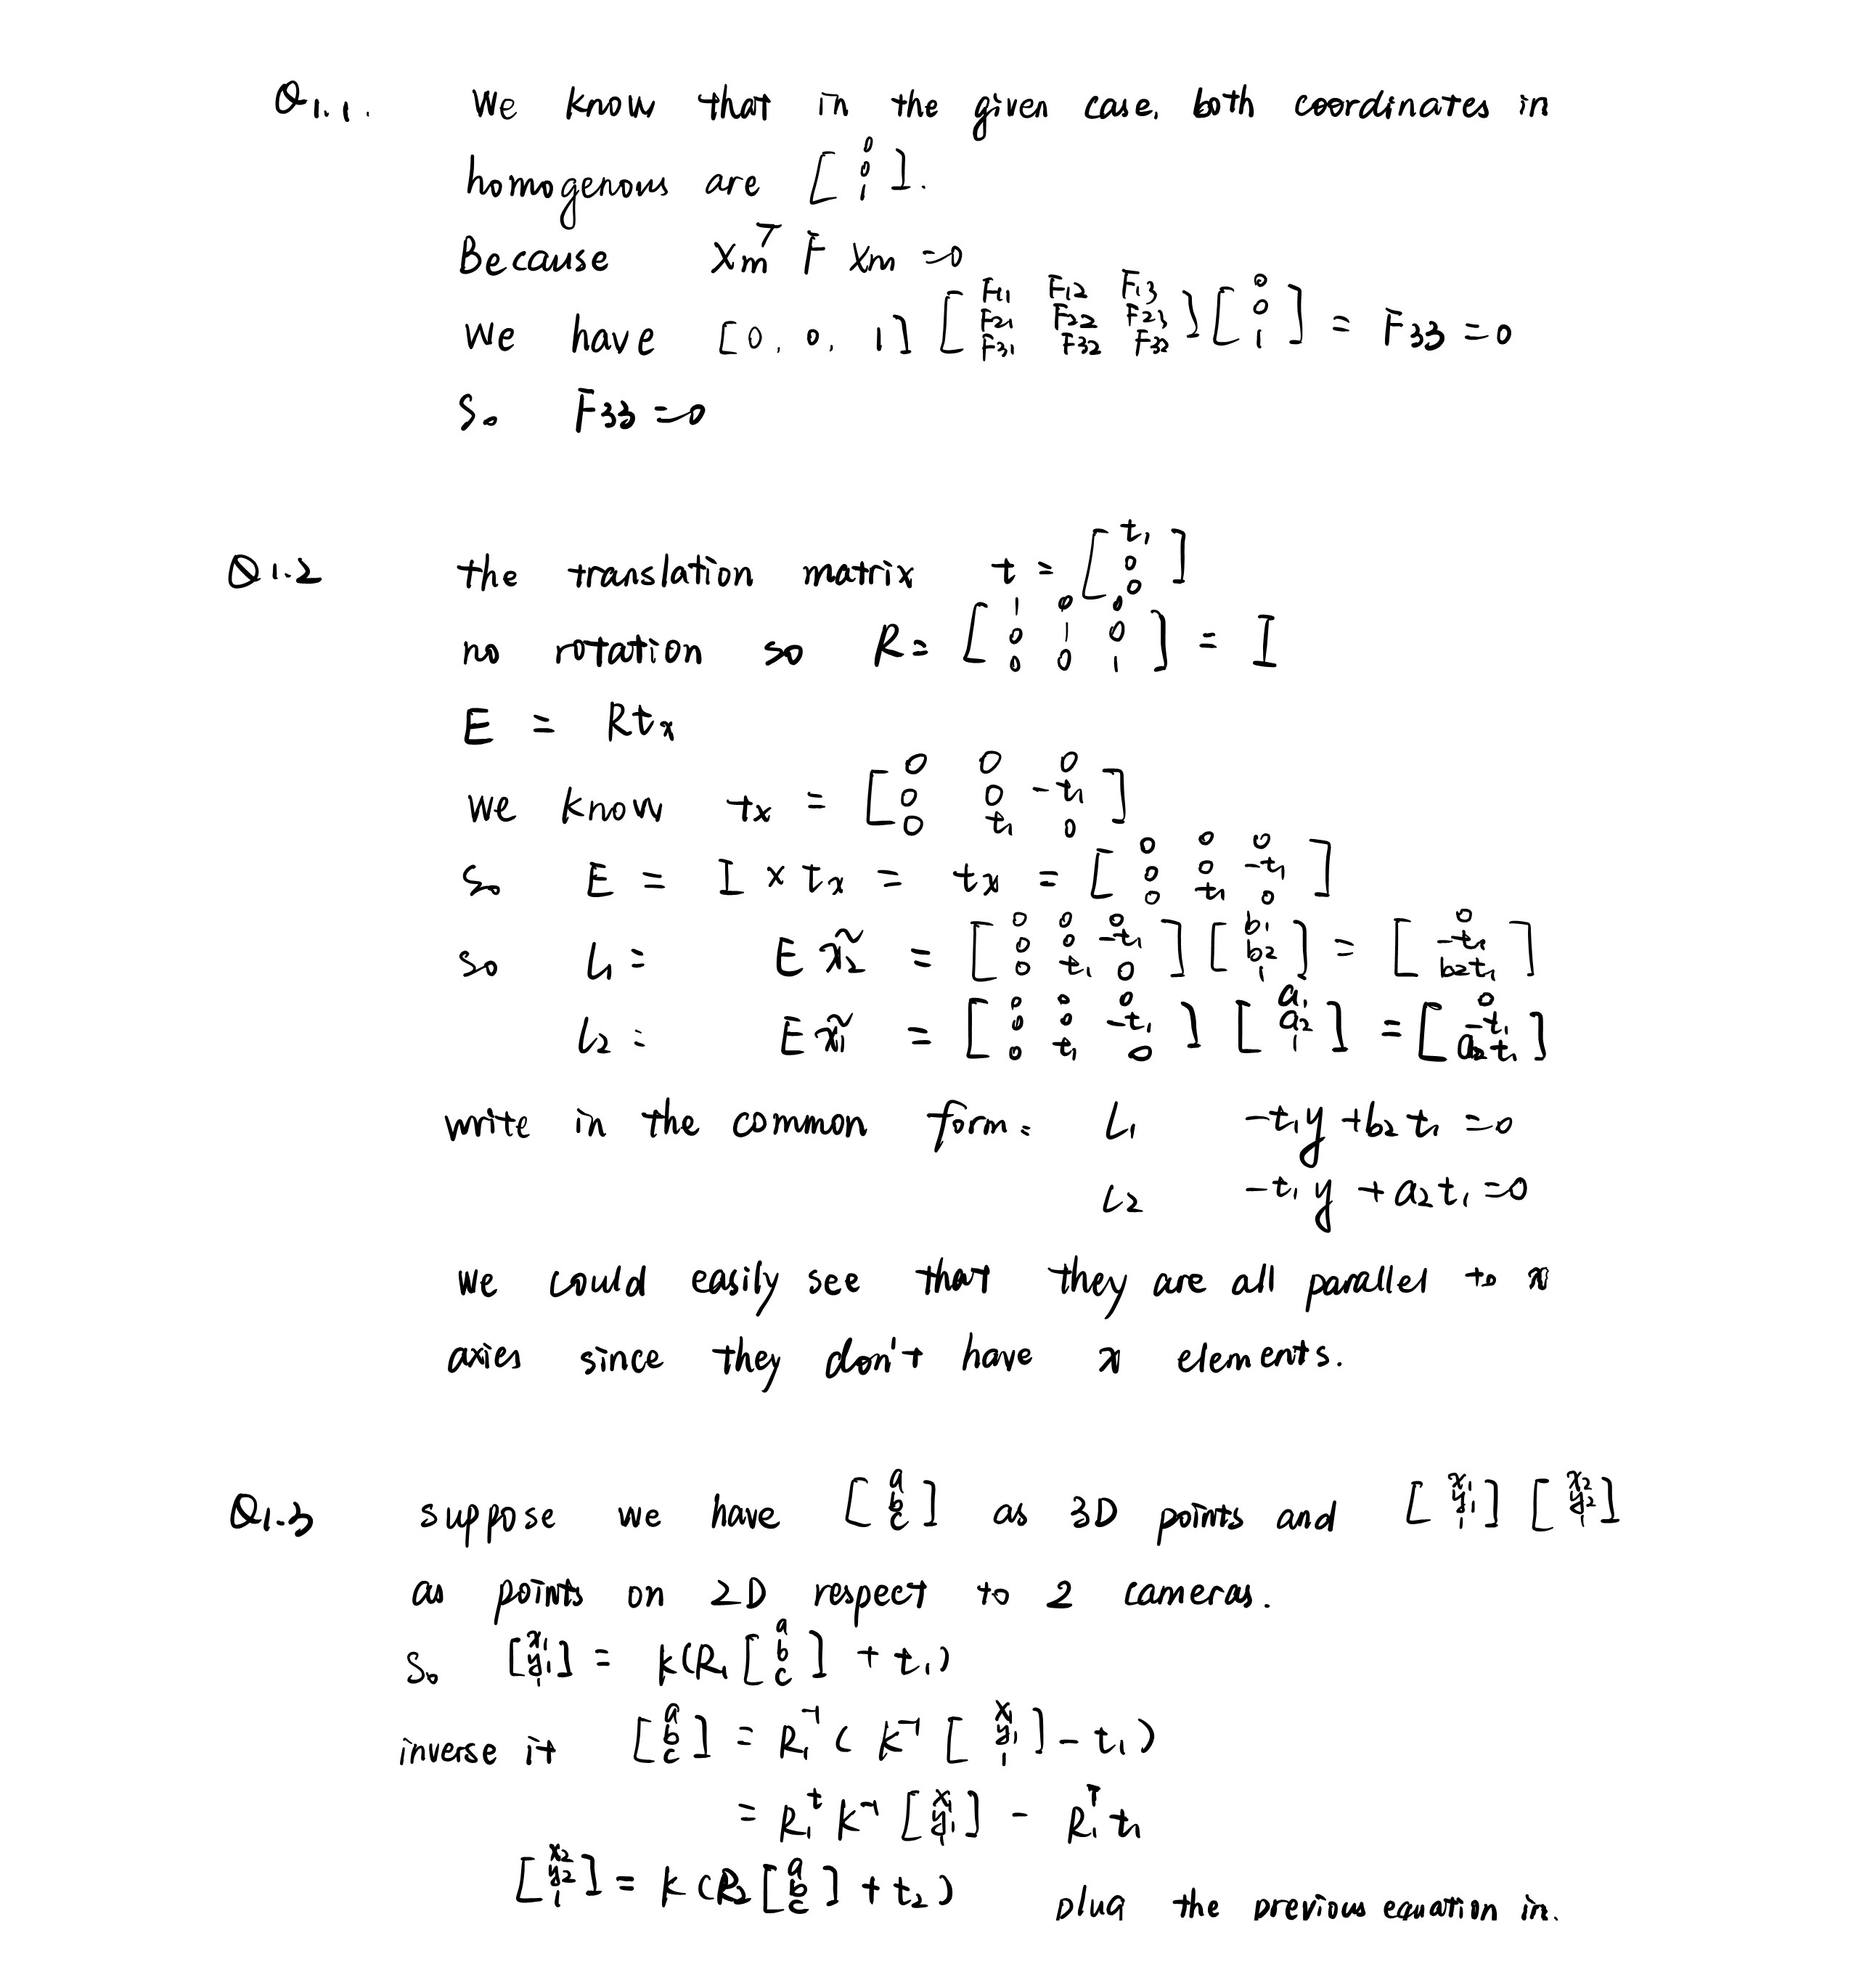 Q1.1. We know that in the given case, both coordinates in
homogenous are [0 0 1].
Because Xm^T F Xm =0
We have [0, 0, 1] [F11 F12 F13 F21 F22 F23 F31 F32 F32] [0 0 1] = F33 =0
So F33 =0
Q1.2 the translation matrix t = [t1 0 0]
no rotation so R= [1 0 0 0 1 0 0 0 1] = I
E = Rtx
we know tx = [0 0 0 0 0 -t1 0 t1 0]
So E = I × tx = tx = [0 0 0 0 0 -t1 0 t1 0]
so l1 = E x̃2 = [0 0 0 0 0 -t1 0 t1 0] [b1 b2 1] = [0 -t1 b2t1]
l2 = E x̃1 = [0 0 0 0 0 -t1 0 t1 0] [a1 a2 1] = [0 -t1 a2t1]
write in the common form: L1 -t1y +b2 t1 =0
L2 -t1 y + a2 t1 =0
we could easily see that they are all parallel to x
axies since they don't have x elements.
Q1.3 suppose we have [a b c] as 3D points and [x1 y1 1] [x2 y2 1]
as points on 2D respect to 2 cameras.
So [x1 y1 1] = K(R1 [a b c] + t1)
inverse it [a b c] = R1^-1 ( K^-1 [x1 y1 1] - t1)
= R1^t K^-1 [x1 y1 1] - R1^T t1
[x2 y2 1] = K (R2 [a b c] + t2) plug the previous equation in.